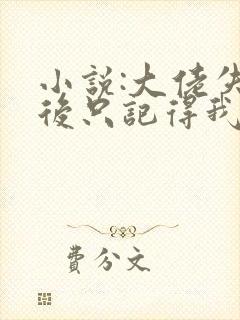 小説:大佬失
後只記得我
費分文